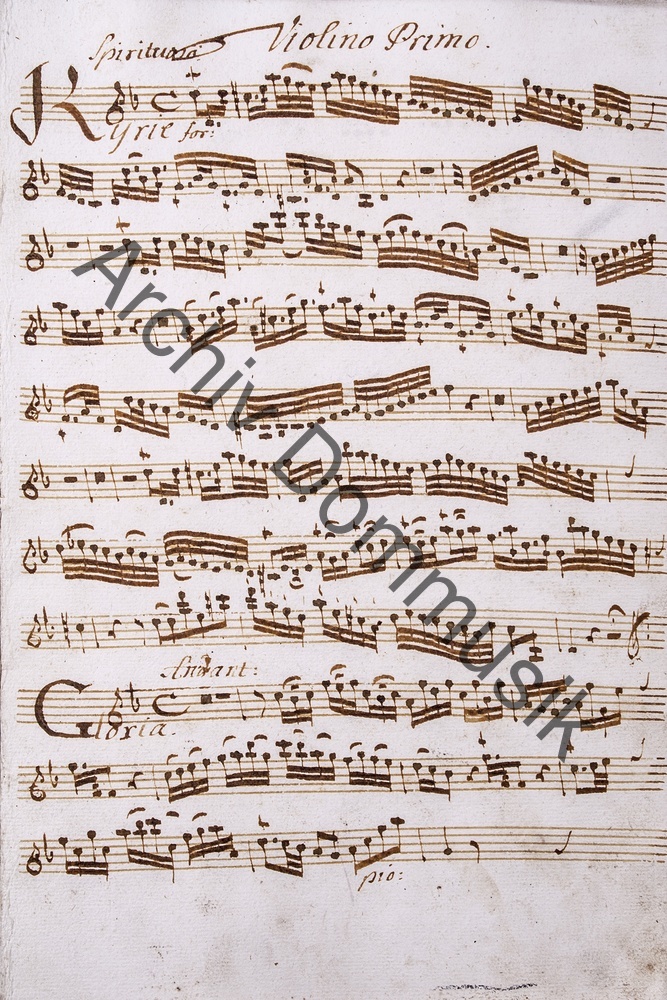 Violino Primo.
Spirituoso
Kyrie for:
Andant:
Gloria.
pio:
Archiv Dommusik